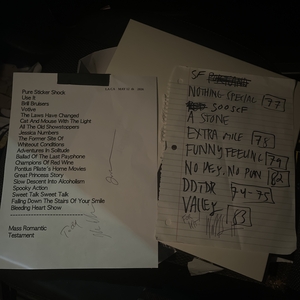 Pure Sticker Shock
Use It
Brill Bruisers
Votive
The Laws Have Changed
Cat And Mouse With The Light
All The Old Showstoppers
Jessica Numbers
The Former Site Of
Whiteout Conditions
Adventures In Solitude
Ballad Of The Last Payphone
Champions Of Red Wine
Pontius Pilate's Home Movies
Great Princess Story
Slow Descent Into Alcoholism
Spooky Action
Sweet Talk Sweet Talk
Falling Down The Stairs Of Your Smile
Bleeding Heart Show
Mass Romantic
Testament
SF
NOTHING SPECIAL 77
GOOSE
A STONE
EXTRA MILE 78
FUNNY FEELING 79
NO KEY, NO PLAN 82
DDTDR 74-75
VALLEY 83